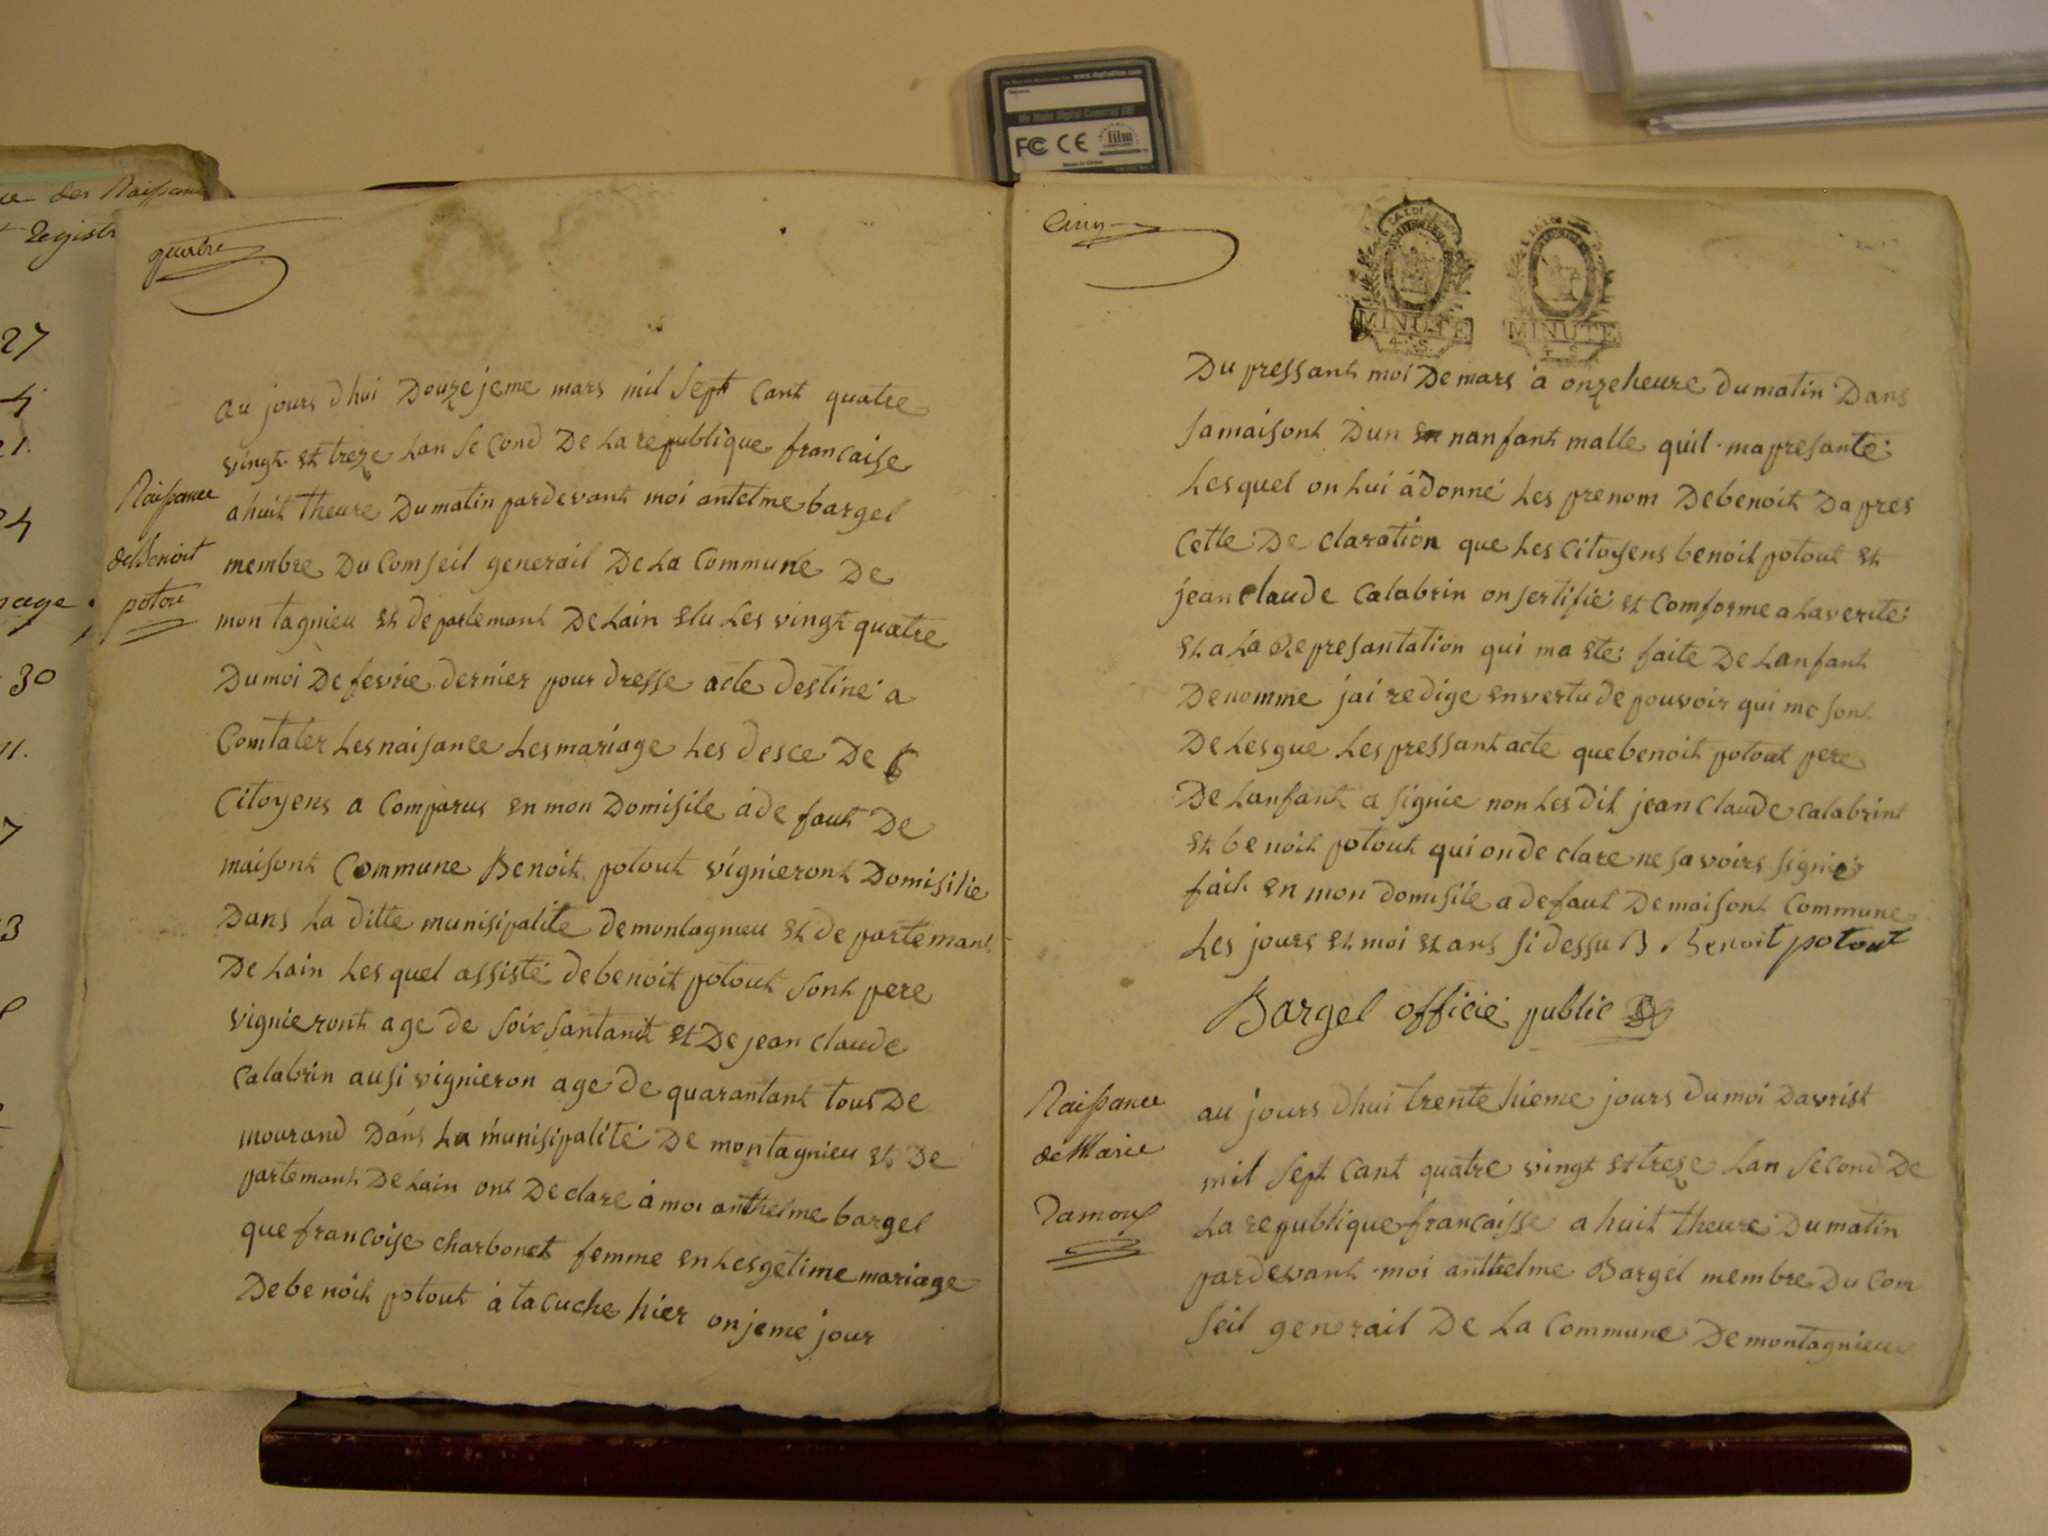 des Naissan
Registr
27
4
21.
24
page
30
11.
7
3
www.digitalfilm.com
FC CE
film
Made in China
quatre
au jours dhui Douzejeme mars mil sept cant quatre
vingt et treze Lan second De La republique francaise
a huit theure Du matin pardevant moi antelme bargel
Naissance
de Benoit
potou
membre Du Comseil generail De La Commune De
montagnieu et departemant De Lain elu Les vingt quatre
Du moi De fevrie dernier pour dresse acte destiné a
Comtater Les naisance Les mariage Les desce De
Citoyens a Comparus en mon Domisile a de faut De
maisont Commune Benoit potout vignieront Domisilie
Dans La ditte munisipalite de montagnieu et de partemant
De Lain Lesquel assisté de benoit potout sont pere
vignieront age de soixsantant et De jean claude
Calabrin ausi vignieron age de quarantant tous De
mourand Dans La munisipalité De montagnieu et De
partemant De Lain ont Declare a moi anthelme bargel
que francoise charbonet femme en Lesgetime mariage
De benoit potout a tacuche hier onjeme jour
Cinq
MINUTE
4. S.
MINUTE
4. S.
Du pressant moi De mars a onze heure du matin Dans
samaisont Dun en nanfant malle quil ma presante
Lesquel on Lui a donné Les prenom De benoit Dapres
Cette De claration que Les Citoyens benoit potout et
jean Claude Calabrin on sertifié et Comforme a La verité
et a La Represantation qui ma eté faite De Lanfant
Denomme jai redige en vertu de pouvoir qui me sont
De Lesgue Les pressant acte que benoit potout pere
De Lanfant a signie non Les dit jean Claude calabrint
et benoit potout qui on de clare ne savoirs signier
fait en mon domisile a defaut De maisont Commune
Les jours et moi et ans si dessu B. Benoit potout
Bargel officié public
Naissance
de Marie
Ramoux
au jours dhui trente hieme jours du moi Davrist
mil sept cant quatre vingt et treze Lan second De
La republique francaisse a huit theure Du matin
pardevant moi anthelme Bargel membre Du Com
seil generail De La Commune De montagnieu